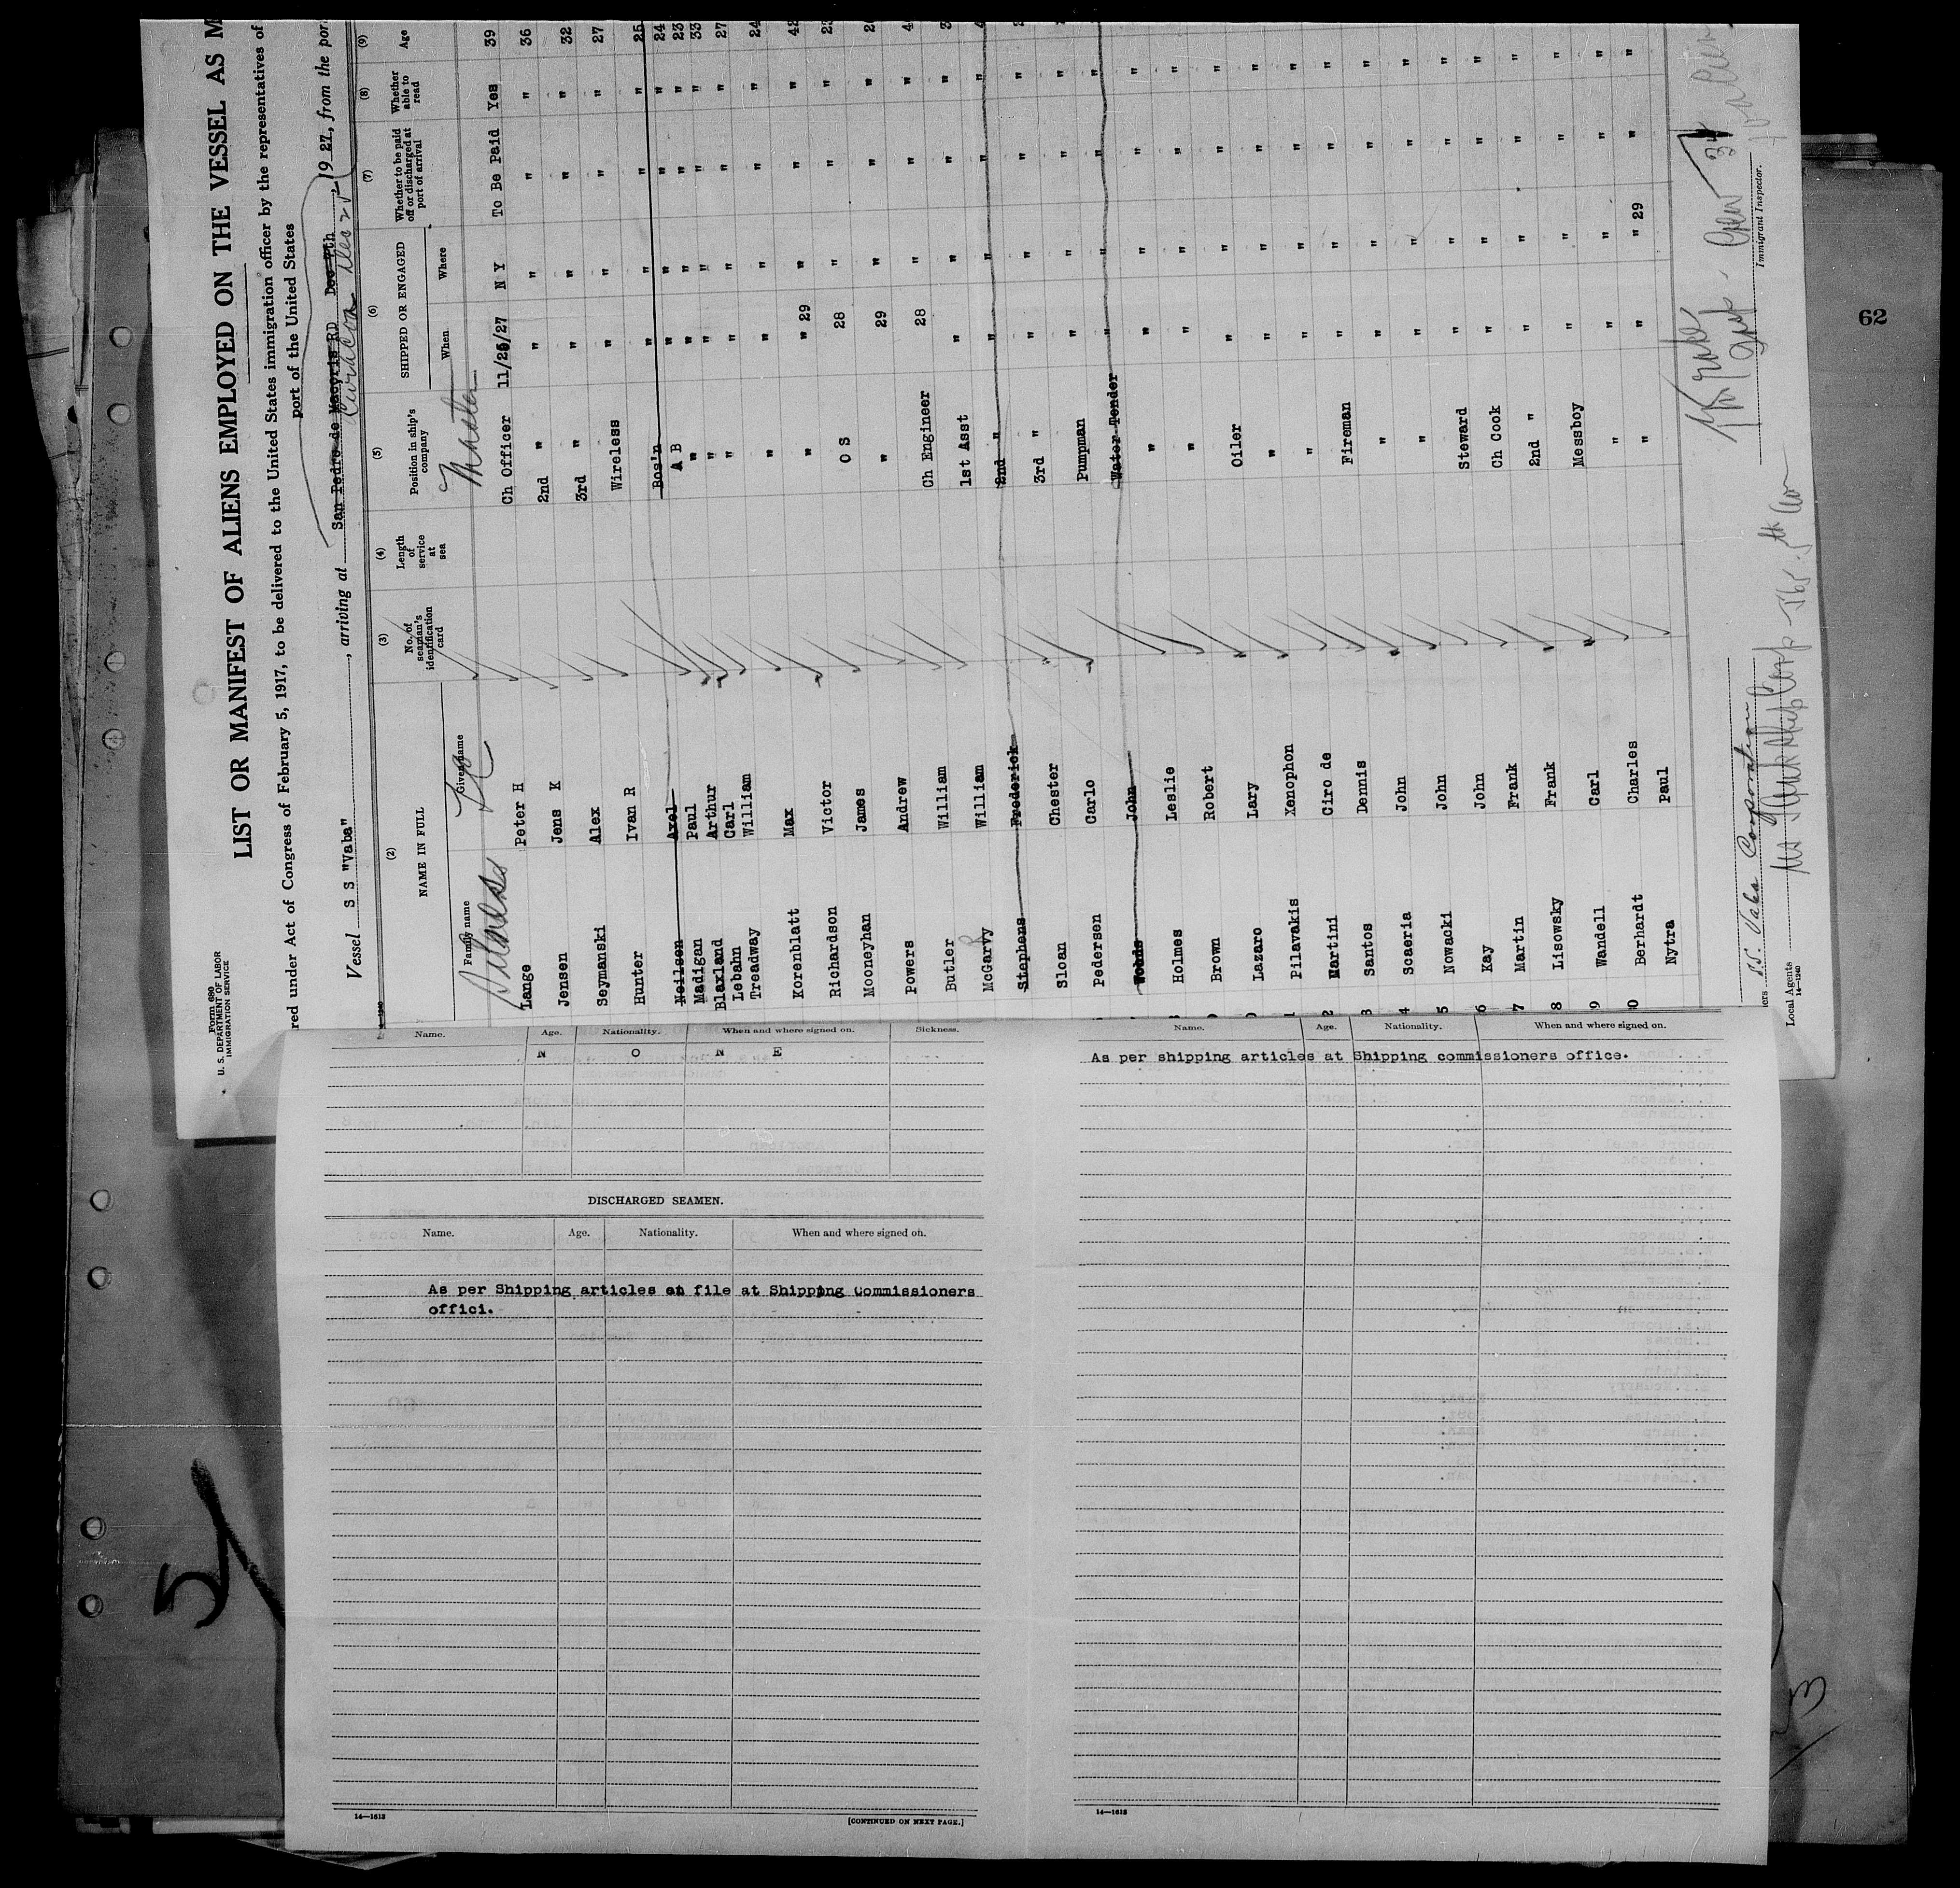 Form 680
U. S. DEPARTMENT OF LABOR
IMMIGRATION SERVICE
LIST OR MANIFEST OF ALIENS EMPLOYED ON THE VESSEL AS M
red under Act of Congress of February 5, 1917, to be delivered to the United States immigration officer by the representatives of
port of the United States
Vessel S S "Vaba", arriving at San Pedro de Macyris RD Dec 7th, 1927, from the por
Curacoa Dec 25
(2) (3) (4) (5) (6) (7) (8) (9)
NAME IN FULL
Family name Given name
No. of seaman's identification card
Length of service at sea
Position in ship's company
SHIPPED OR ENGAGED
When Where
Whether to be paid off or discharged at port of arrival
Whether able to read
Age
Master
Lange Peter H Ch Officer 11/25/27 N Y To Be Paid Yes 39
Jensen Jens K 2nd " " " " " 36
Seymanski Alex 3rd " " " " " 32
Hunter Ivan R Wireless " " " " 27
Neilsen Axel Bos'n " " " " 25
Madigan Paul A B " " " " 24
Blaxland Arthur " " " " " 23
Lebahn Carl " " " " " 33
Treadway William " " " " " 27
Korenblatt Max " " " " " 24
Richardson Victor " " 29 " " "
Mooneyhan James O S 28 " " "
Powers Andrew " 29 " " "
Butler William Ch Engineer 28 " " "
McGarvy William 1st Asst " " " "
Stephens Frederick 2nd " " " " "
Sloan Chester 3rd " " " " "
Pedersen Carlo Pumpman " " " "
Woods John Water Tender " " " "
Holmes Leslie " " " " "
Brown Robert " " " " "
Lazaro Lary Oiler " " " "
Pilavakis Xenophon " " " " "
Martini Ciro de " " " " "
Santos Dennis Fireman " " " "
Scaeria John " " " " "
Nowacki John " " " " "
Kay John Steward " " " "
Martin Frank Ch Cook " " " "
Lisowsky Frank 2nd " " " " "
Wandell Carl Messboy " " " "
Berhardt Charles " " " " "
Nytra Paul " " " 29 " "
S.S. Vaba Corporation
Local Agents
14—1240
Immigrant Inspector.
62
Name. Age. Nationality. When and where signed on. Sickness.
N O N E
DISCHARGED SEAMEN.
Name. Age. Nationality. When and where signed on.
As per Shipping articles on file at Shipping Commissioners
offici.
14—1613
[CONTINUED ON NEXT PAGE.]
Name. Age. Nationality. When and where signed on.
As per shipping articles at Shipping commissioners office.
14—1613
5